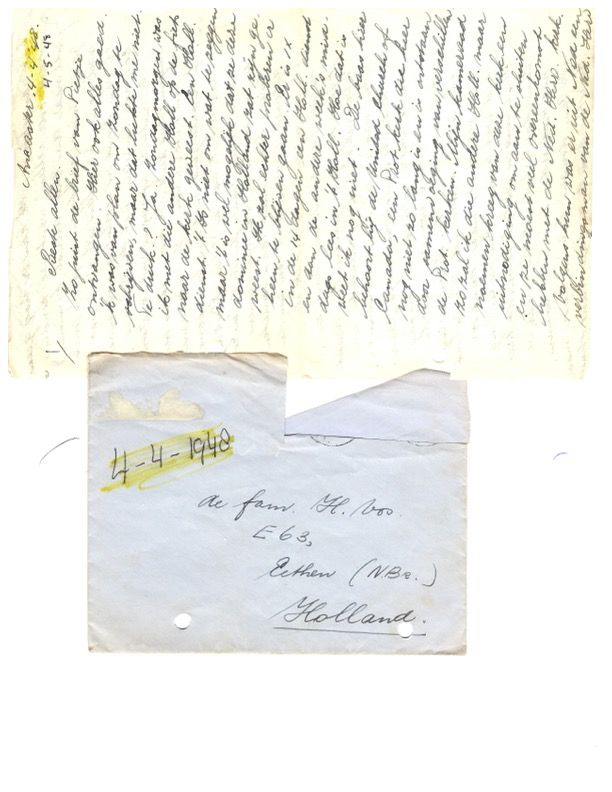 4-4-48.
4-5-48
Beste allen
Zo juist de brief van Pietje
ontvangen. Hier ook alles goed.
Ik was van plan om Zondag te
schrijven, maar dat lukte me niet.
Te druk? Ja. Zondagmorgen was
ik met die andere Holl. op de fiets
naar de kerk geweest. Een Holl.
dienst. 't Is niet om wat te zeggen
maar 't is wel mogelijk dat ze deze
dominee in Holland zijn ge-
weest. Ik zal echter er
heen te blijven gaan. Er is 1x
in de 14 dagen een Holl. dienst
en dan de andere week 's mid-
dags les in 't Holl. Hoe dat is
weet ik nog niet. De kerk hier
behoort bij de united church of
Canada, een Prot. kerk die hier
nog niet zo lang is en is ontstaan
door samenvoeging van verschillen-
de Prot. kerken. Mijn kameraad
zo zal ik die andere Holl. maar
noemen kreeg van deze kerk een
uitnodiging om aan te sluiten
en ze moest veel overeenkomst
hebben met de Ned. Herv. kerk.
(volgens hun was er uit
van de Ned. Herv.
4-4-1948
de fam. H. Vos.
E 63,
Eethen (N.Br.)
Holland.